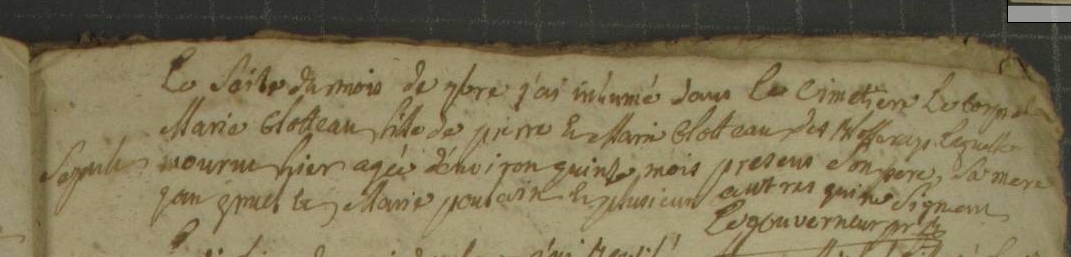 Le Seize du mois de 9bre j'ai inhumé dans le Cimetiere le Corps de
Marie Clotteau fille de pierre & Marie Clotteau des laquelle
Sepult. mourut hier agée d'environ quinze mois presens Son pere, Sa mere
jan Marie poulain & plusieurs autres qui ne Signent
Legouverneur ptre